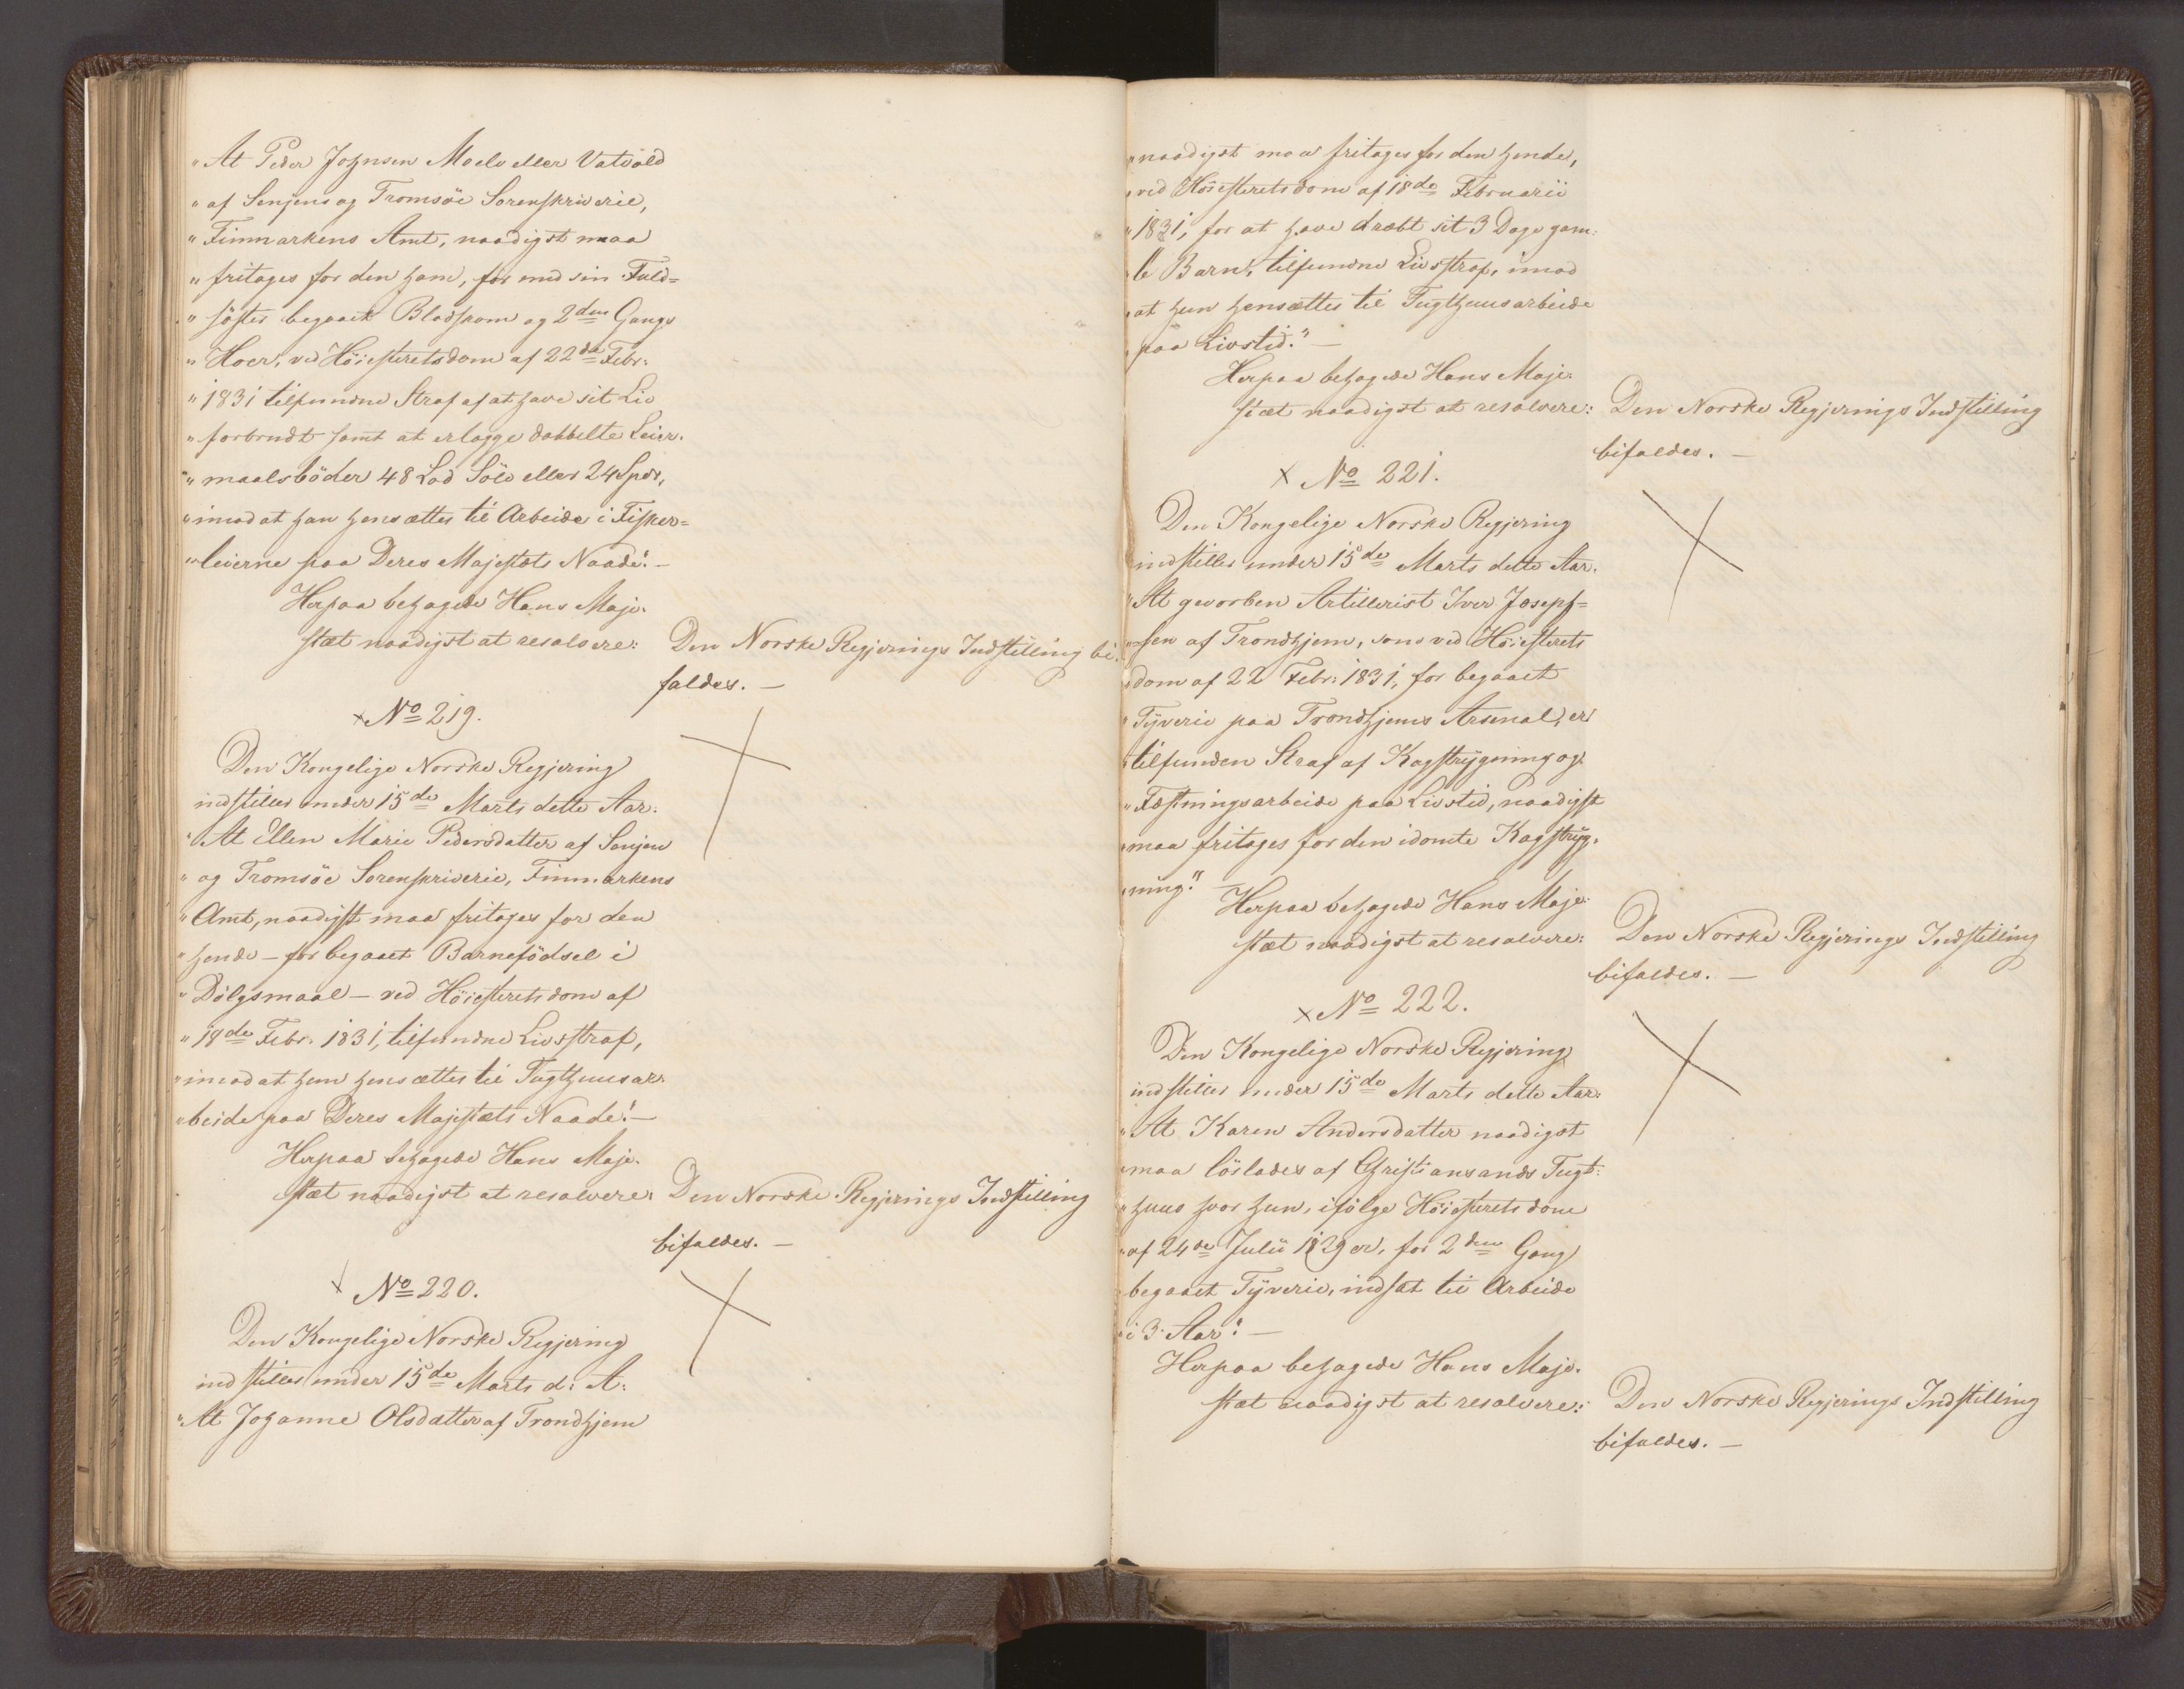 "At Peder Johnsen Moelv eller Vatvold
"af Senjens og Tromsöe Sorenskriverie,
"Finmarkens Amt, naadigst maa
"fritages for den ham, for med sin Fuld=
"söster begaaet Blodskam og 2den Gangs
"Hoer, ved Höiesteretsdom af 22de Febr:
"1831 tilfundne Straf af at have sit Liv
"forbrudt samt at erlægge dobbelte Leier-
"maalsböder 48 Lod Sölv eller 24 Spdr,
"imod at han hensættes til Arbeide i Fisker=
"leierne paa Deres Majestæts Naade". –
Herpaa behagede Hans Maje-
stæt naadigst at resolvere: Den Norske Regjerings Indstilling bi-
faldes. –
x No 219.
Den Kongelige Norske Regjering
indstiller under 15de Marts dette Aar:
"At Ellen Marie Pedersdatter af Senjen
"og Tromsöe Sorenskriverie, Finmarkens
"Amt, naadigst maa fritages for den
"hende – for begaaet Barnefödsel i
"Dölgsmaal – ved Höiesteretsdom af
"18de Febr. 1831, tilfundne Livsstraf,
"imod at hun hensættes til Tugthuusar-
"beide paa Deres Majestæts Naade". –
Herpaa behagede Hans Maje-
stæt naadigst at resolvere: Den Norske Regjerings Indstilling
bifaldes. –
x No 220.
Den Kongelige Norske Regjering
indstiller under 15de Marts d: A:
"At Johanne Olsdatter af Trondhjem
"naadigst maa fritages for den hende,
"ved Höiesteretsdom af 18de Februarii
"1831, for at have dræbt sit 3 Dage gam-
"le Barn, tilfundne Livsstraf, imod
"at hun hensættes til Tugthuusarbeide
"paa Livstid." –
Herpaa behagede Hans Maje-
stæt naadigst at resolvere: Den Norske Regjerings Indstilling
bifaldes. –
x No 221.
Den Kongelige Norske Regjering
indstiller under 15de Marts dette Aar:
"At geworben Artillerist Iver Joseph=
"sen af Trondhjem, som ved Höiesterets
"dom af 22 Febr: 1831, for begaaet
"Tyverie paa Trondhjems Arsenal, er
"tilfunden Straf af Kagstrygning og
"Fæstningsarbeide paa Livstid, naadigst
"maa fritages for den idömte Kagstryg-
"ning." –
Herpaa behagede Hans Maje-
stæt naadigst at resolvere: Den Norske Regjerings Indstilling
bifaldes. –
x No 222.
Den Kongelige Norske Regjering
indstiller under 15de Marts dette Aar:
"At Karen Andersdatter naadigst
"maa löslades af Christiansands Tugt-
"huus hvor hun, ifölge Höiesteretsdom
"af 24de Julii 1829 er, for 2den Gang
"begaaet Tyverie, indsat til Arbeide
"i 3 Aar". –
Herpaa behagede Hans Maje-
stæt naadigst at resolvere: Den Norske Regjerings Indstilling
bifaldes. –